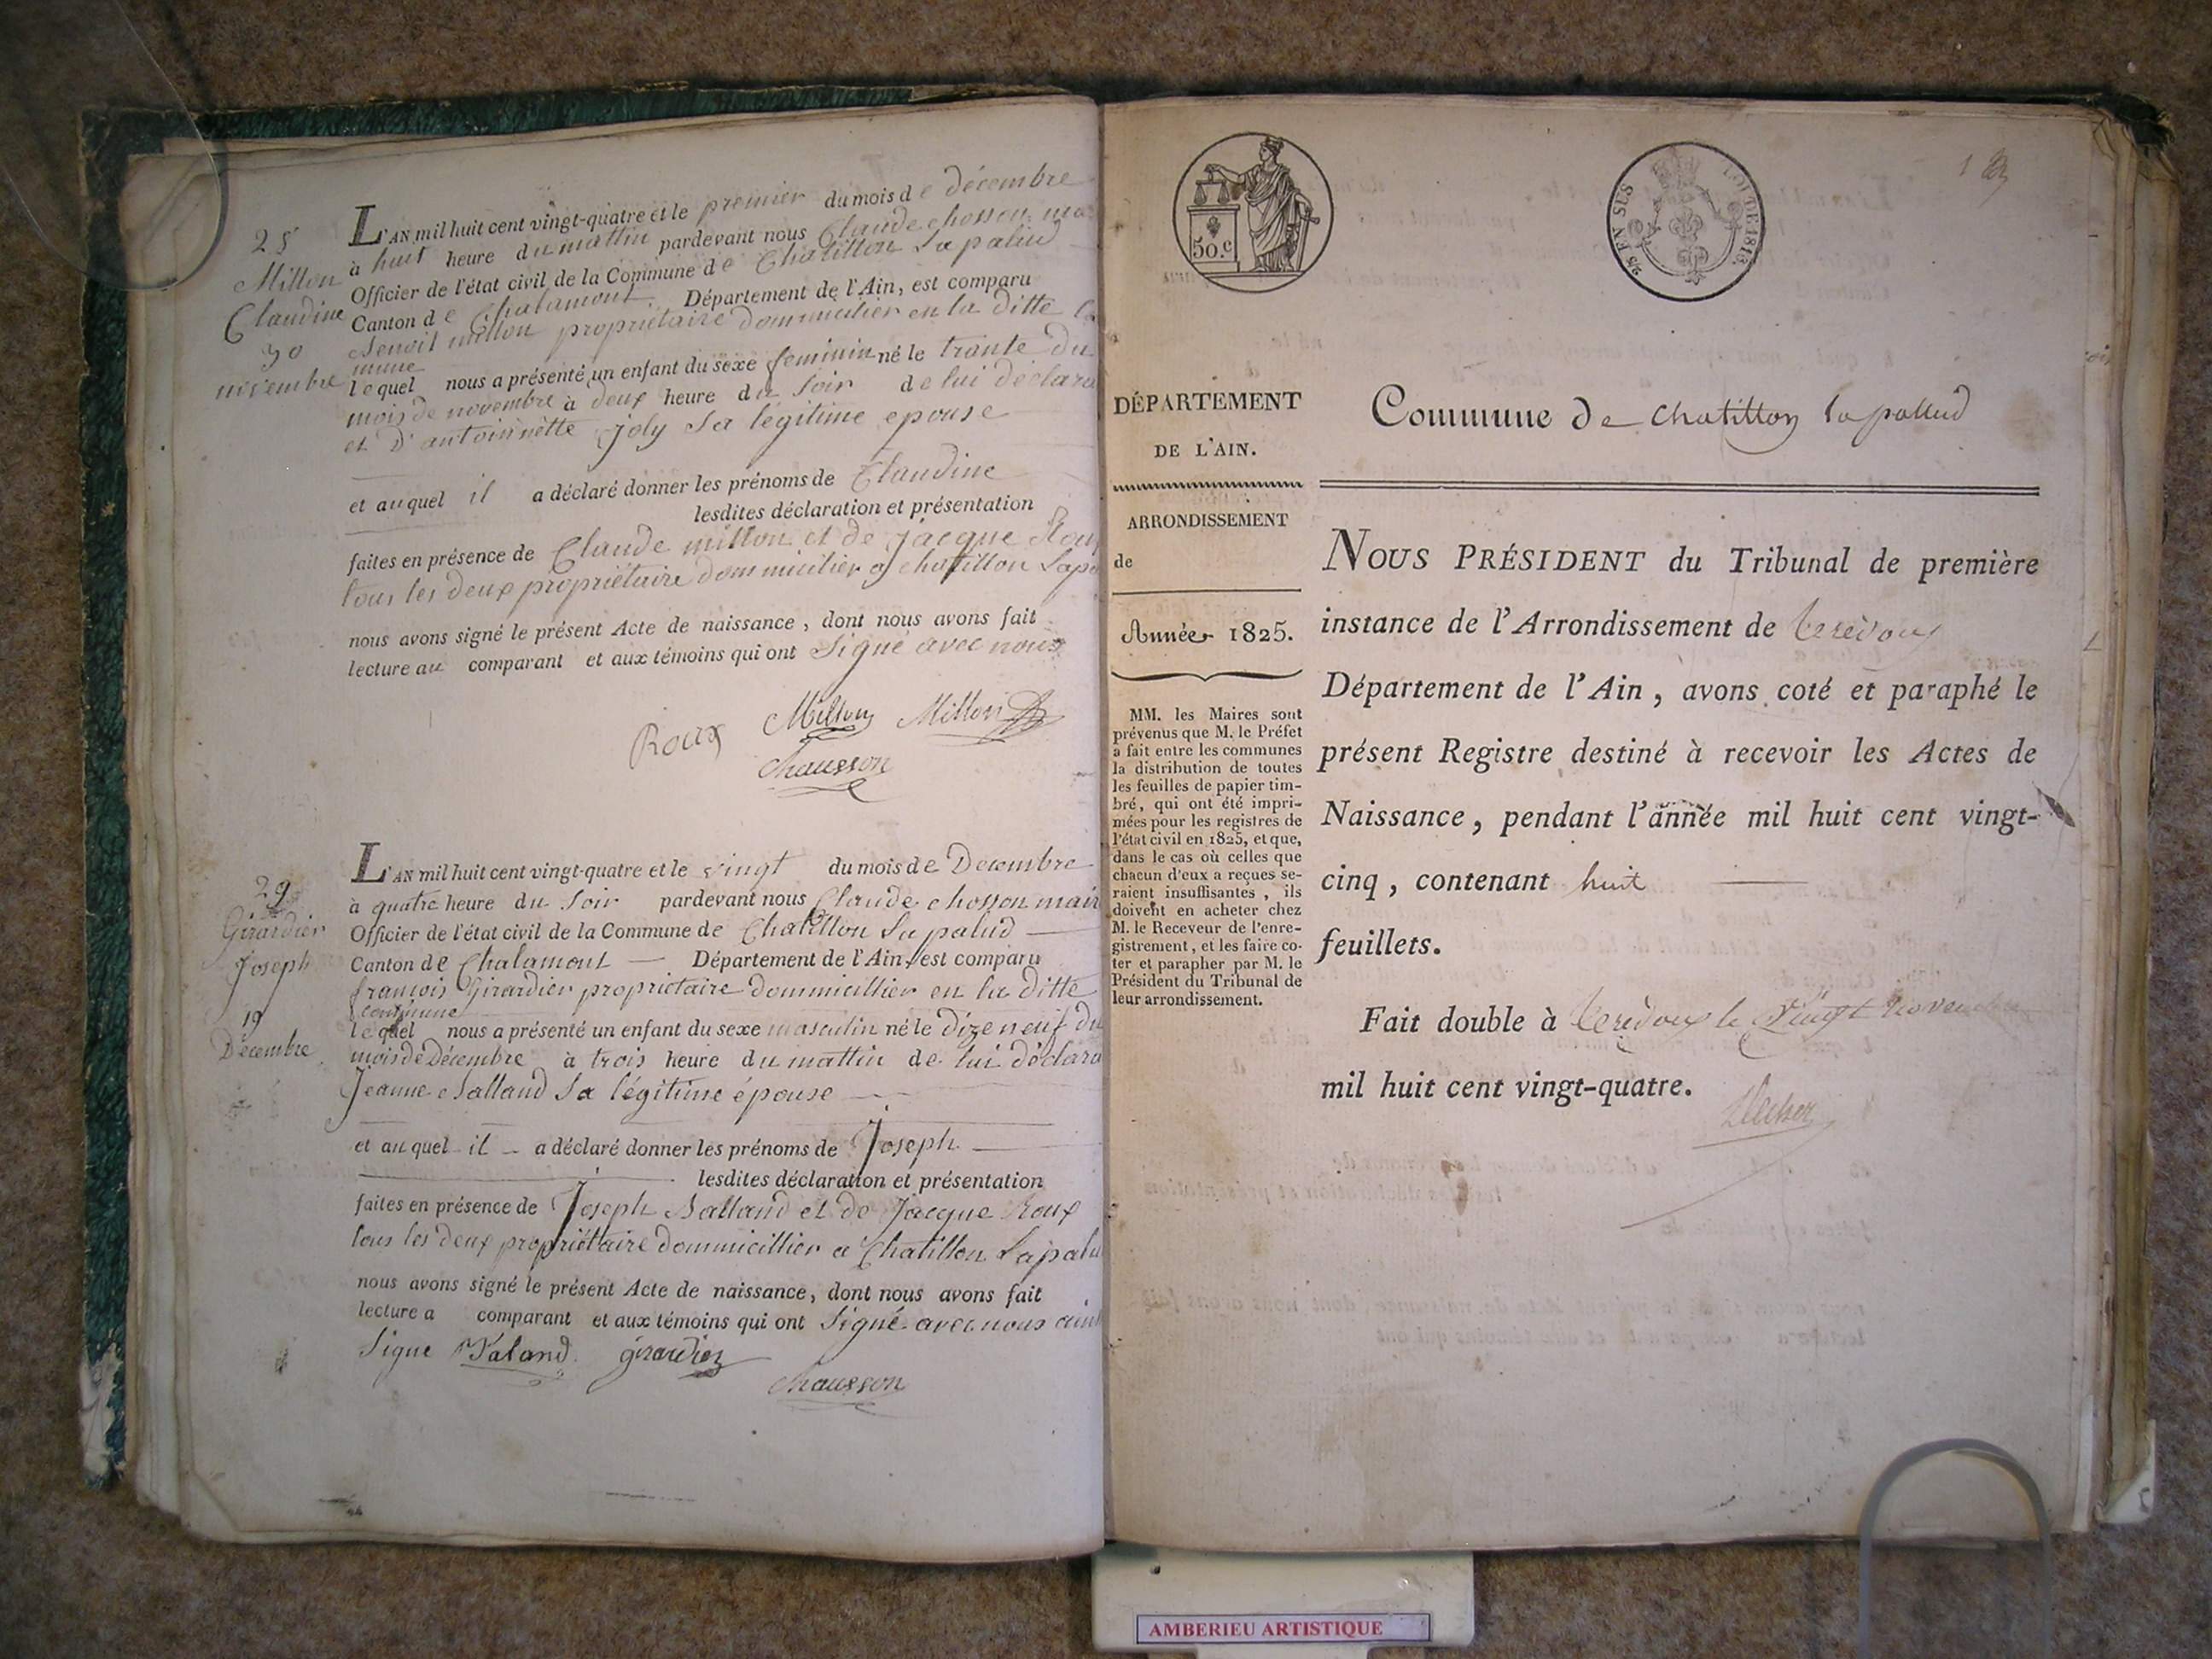 28
Millon
Claudine
30
novembre
L'AN mil huit cent vingt-quatre et le premier du mois de décembre
à huit heure du mattin pardevant nous Claude chosson
Officier de l'état civil de la Commune de Chatillon Lapalud
Canton de Chalamont Département de l'Ain, est comparu
Benoit millon propriétaire dommicilier en la ditte
mune
lequel nous a présenté un enfant du sexe feminin né le trante du
mois de novembre à deux heure du soir de lui déclara
et D'antoinnette joly Sa légitime epouse
et auquel il a déclaré donner les prénoms de Claudine
lesdites déclaration et présentation
faites en présence de Claude millon et de jacque Roux
tous les deux propriétaire dommicilier a chatillon Lapa
nous avons signé le présent Acte de naissance, dont nous avons fait
lecture au comparant et aux témoins qui ont Signé avec nous
Roux Millon Millon
Chausson
29
Girardier
Joseph
19
Décembre
L'AN mil huit cent vingt-quatre et le vingt du mois de Decembre
à quatre heure du Soir pardevant nous Claude chosson mair
Officier de l'état civil de la Commune de Chatillon Lapalud
Canton de Chalamont Département de l'Ain, est comparu
françois Girardier propriétaire dommicillier en la ditte
commune
lequel nous a présenté un enfant du sexe masculin né le dize neuf du
mois de Décembre à trois heure du mattin de lui déclara
Jeanne Salland Sa légitime épouse
et auquel il a déclaré donner les prénoms de Joseph
lesdites déclaration et présentation
faites en présence de Joseph Salland et de Jacque Roux
tous les deux propriétaire dommicillier a Chatillon Lapalu
nous avons signé le présent Acte de naissance, dont nous avons fait
lecture a comparant et aux témoins qui ont Signé avec nous
Signe Saland girardier
Chausson
50.c
EN SUS
LOI DE 1816.
1
DÉPARTEMENT
DE L'AIN.
ARRONDISSEMENT
de
Année 1825.
MM. les Maires sont
prévenus que M. le Préfet
a fait entre les communes
la distribution de toutes
les feuilles de papier tim-
bré, qui ont été impri-
mées pour les registres de
l'état civil en 1825, et que,
dans le cas où celles que
chacun d'eux a reçues se-
raient insuffisantes, ils
doivent en acheter chez
M. le Receveur de l'enre-
gistrement, et les faire co-
ter et parapher par M. le
Président du Tribunal de
leur arrondissement.
Commune de chatillon la pallud
NOUS PRÉSIDENT du Tribunal de première
instance de l'Arrondissement de
Département de l'Ain, avons coté et paraphé le
présent Registre destiné à recevoir les Actes de
Naissance, pendant l'année mil huit cent vingt-
cinq, contenant huit
feuillets.
Fait double à le vingt novembre
mil huit cent vingt-quatre.
AMBERIEU ARTISTIQUE